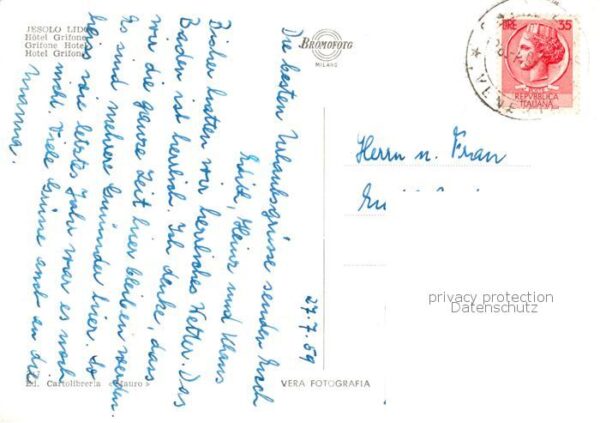 JESOLO LIDO
Hôtel Grifone
Grifone Hotel
Hotel Grifone
BROMOFOTO
MILANO
LIRE 35
REPVBBLICA
ITALIANA
27.7.59
Die besten Urlaubsgrüsse senden Euch
Edith, Heinz und Klaus
Bisher hatten wir herrliches Wetter. Das
Baden ist herrlich. Ich denke, dass
wir die ganze Zeit hier bleiben werden.
Es sind mehrere Gmünder hier. So
heiss wie letztes Jahr war es noch
nicht. Viele Grüsse auch an die
Mamma.
Herrn u. Frau
privacy protection
Datenschutz
Ed. Cartolibreria «Mauro»
VERA FOTOGRAFIA